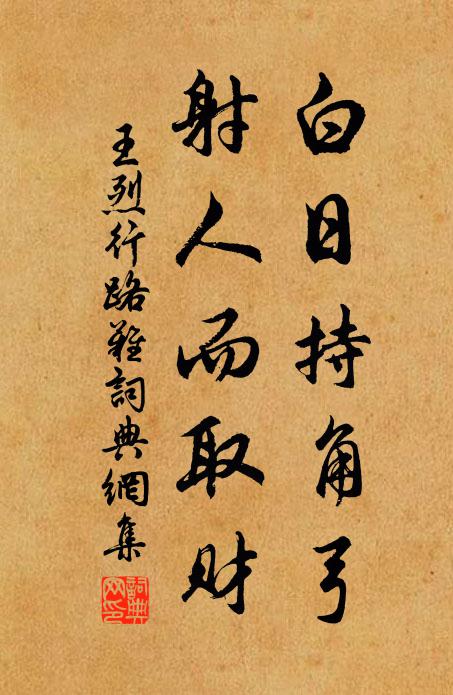 白日持角弓
射人而取財
王烈行路難詞典網集
詞典網印